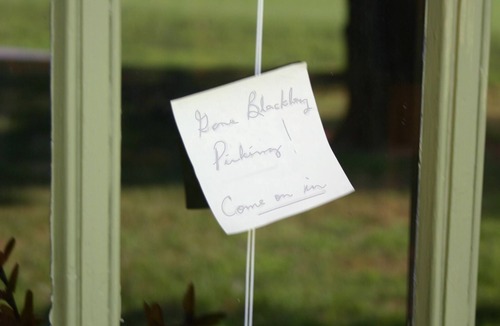 Gone Blackbery
Picking!
Come on in